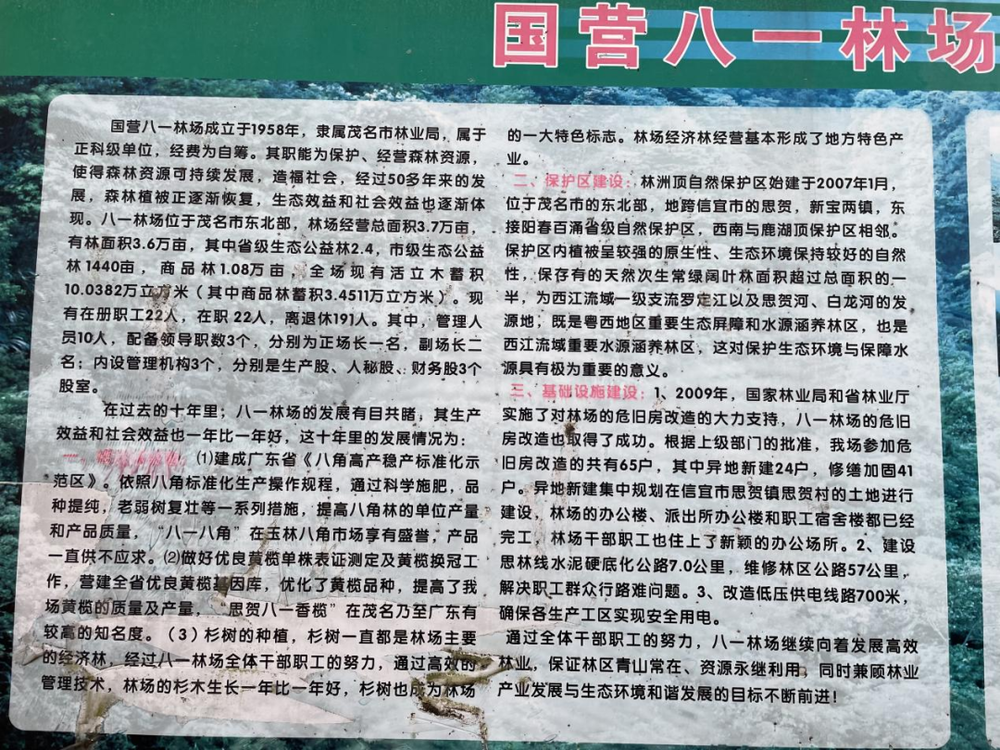 国营八一林场
国营八一林场成立于1958年，隶属茂名市林业局，属于
正科级单位，经费为自筹。其职能为保护、经营森林资源，
使得森林资源可持续发展，造福社会，经过50多年来的发
展，森林植被正逐渐恢复，生态效益和社会效益也逐渐体
现。八一林场位于茂名市东北部，林场经营总面积3.7万亩，
有林面积3.6万亩，其中省级生态公益林2.4，市级生态公益
林1440亩，商品林1.08万亩，全场现有活立木蓄积
10.0382万立方米（其中商品林蓄积3.4511万立方米）。现
有在册职工22人，在职 22人，离退休191人。其中，管理人
员10人，配备领导职数3个，分别为正场长一名，副场长二
名；内设管理机构3个，分别是生产股、人秘股、财务股3个
股室。
在过去的十年里；八一林场的发展有目共睹，其生产
效益和社会效益也一年比一年好，这十年里的发展情况为：
一、 ⑴建成广东省《八角高产稳产标准化示
范区》。依照八角标准化生产操作规程，通过科学施肥，品
种提纯，老弱树复壮等一系列措施，提高八角林的单位产量
和产品质量，“八一八角”在玉林八角市场享有盛誉，产品
一直供不应求。⑵做好优良黄榄单株表证测定及黄榄换冠工
作，营建全省优良黄榄基因库，优化了黄榄品种，提高了我
场黄榄的质量及产量，“思贺八一香榄”在茂名乃至广东有
较高的知名度。（3）杉树的种植，杉树一直都是林场主要
的经济林，经过八一林场全体干部职工的努力，通过高效的
管理技术，林场的杉木生长一年比一年好，杉树也成为林场
的一大特色标志。林场经济林经营基本形成了地方特色产
业。
二、保护区建设：林洲顶自然保护区始建于2007年1月，
位于茂名市的东北部，地跨信宜市的思贺，新宝两镇，东
接阳春百涌省级自然保护区，西南与鹿湖顶保护区相邻。
保护区内植被呈较强的原生性、生态环境保持较好的自然
性，保存有的天然次生常绿阔叶林面积超过总面积的一
半，为西江流域一级支流罗定江以及思贺河、白龙河的发
源地，既是粤西地区重要生态屏障和水源涵养林区，也是
西江流域重要水源涵养林区，这对保护生态环境与保障水
源具有极为重要的意义。
三、基础设施建设：1、2009年，国家林业局和省林业厅
实施了对林场的危旧房改造的大力支持，八一林场的危旧
房改造也取得了成功。根据上级部门的批准，我场参加危
旧房改造的共有65户，其中异地新建24户，修缮加固41
户。异地新建集中规划在信宜市思贺镇思贺村的土地进行
建设，林场的办公楼、派出所办公楼和职工宿舍楼都已经
完工，林场干部职工也住上了新颖的办公场所。2、建设
思林线水泥硬底化公路7.0公里，维修林区公路57公里，
解决职工群众行路难问题。3、改造低压供电线路700米，
确保各生产工区实现安全用电。
通过全体干部职工的努力，八一林场继续向着发展高效
林业，保证林区青山常在、资源永继利用，同时兼顾林业
产业发展与生态环境和谐发展的目标不断前进！